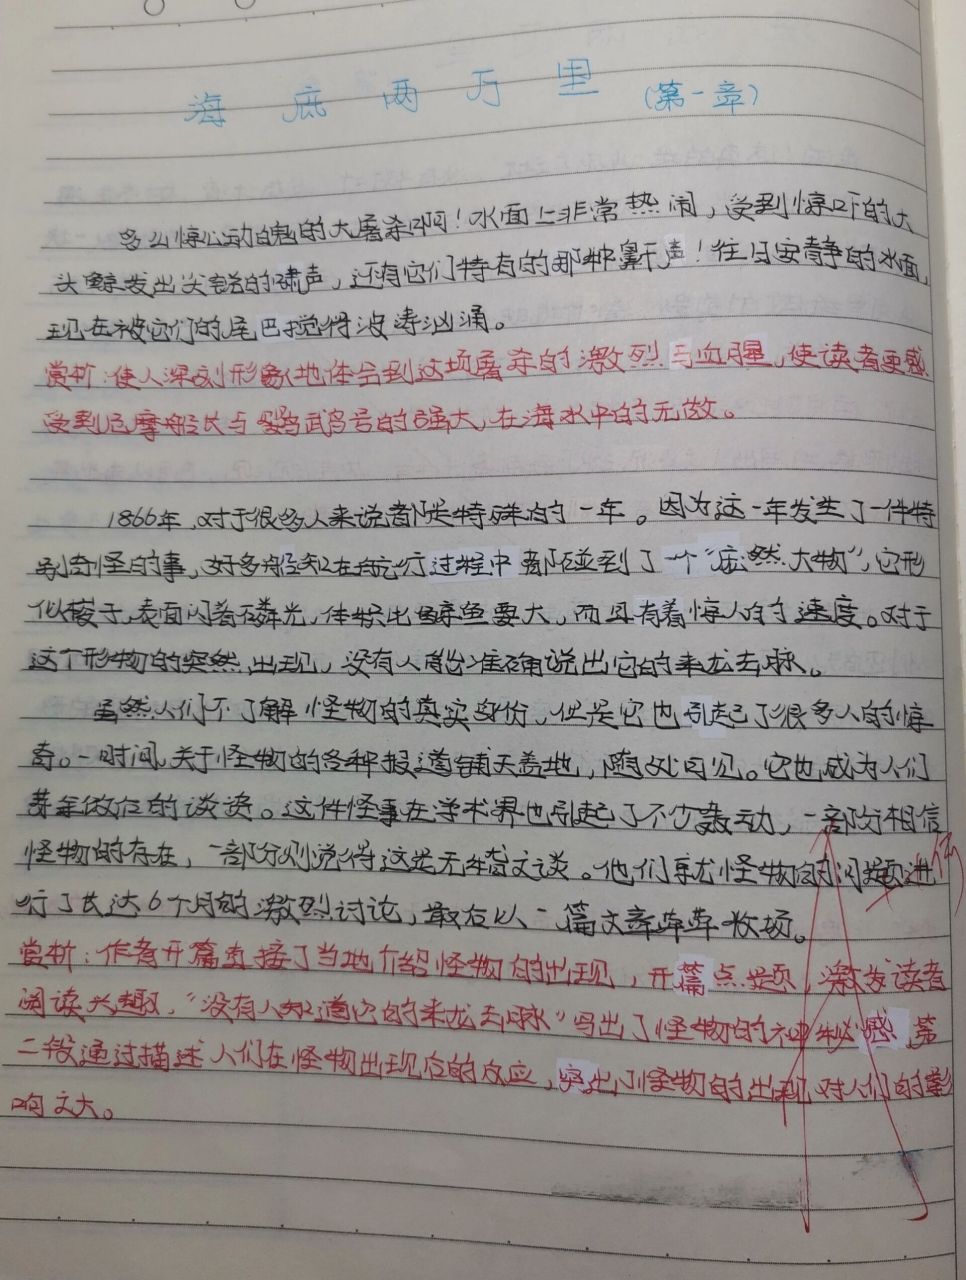 海底两万里(第一章)
多么惊心动魄的大屠杀啊！水面上非常热闹，受到惊吓的大
头鲸发出尖锐的啸声，还有它们特有的那种鼾声！往日安静的水面，
现在被它们的尾巴搅得波涛汹涌。
赏析：使人深刻形象地体会到这场屠杀的激烈与血腥，使读者更感
受到尼摩船长与鹦鹉号的强大，在海水中的无敌。
1866年，对于很多人来说都是特殊的一年。因为这一年发生了一件特
别奇怪的事，好多船只在航行过程中都碰到了一个“庞然大物”，它形
似梭子，表面闪着磷光，体积比鲸鱼要大，而且有着惊人的速度。对于
这个怪物的突然出现，没有人能准确说出它的来龙去脉。
虽然人们不了解怪物的真实身份，但是它也引起了很多人的惊
奇。一时间，关于怪物的各种报道铺天盖地，随处可见。它也成为人们
茶余饭后的谈资。这件怪事在学术界也引起了不少轰动，一部分相信
怪物的存在，一部分则觉得这是无稽之谈。他们就怪物的问题进
行了长达6个月的激烈讨论，最后以一篇文章草草收场。
赏析：作者开篇直接了当地介绍怪物的出现，开篇点题，激发读者
阅读兴趣，“没有人知道它的来龙去脉”写出了怪物的神秘感，第
二段通过描述人们在怪物出现后的反应，突出了怪物的出现对人们的影
响之大。